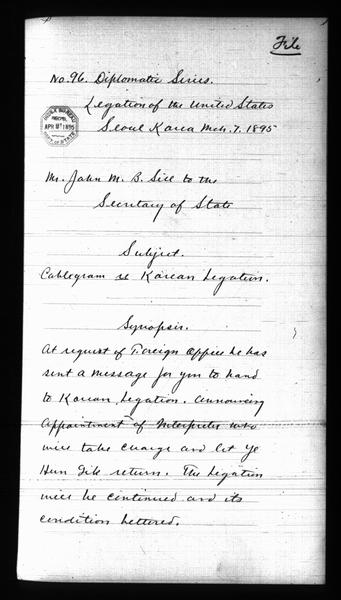 File
No. 96. Diplomatic Series.
Legation of the United States
Seoul Korea Mch. 7. 1895
APR 1895
DEPT OF STATE
Mr. John M. B. Sill to the
Secretary of State
Subject.
Cablegram re Korean Legation.
Synopsis.
At request of Foreign Office he has
sent a message for you to hand
to Korean Legation. Announcing
Appointment of Interpreter who
will take charge and let Ye
Hun Jik return. The Legation
will be continued and its
condition bettered.